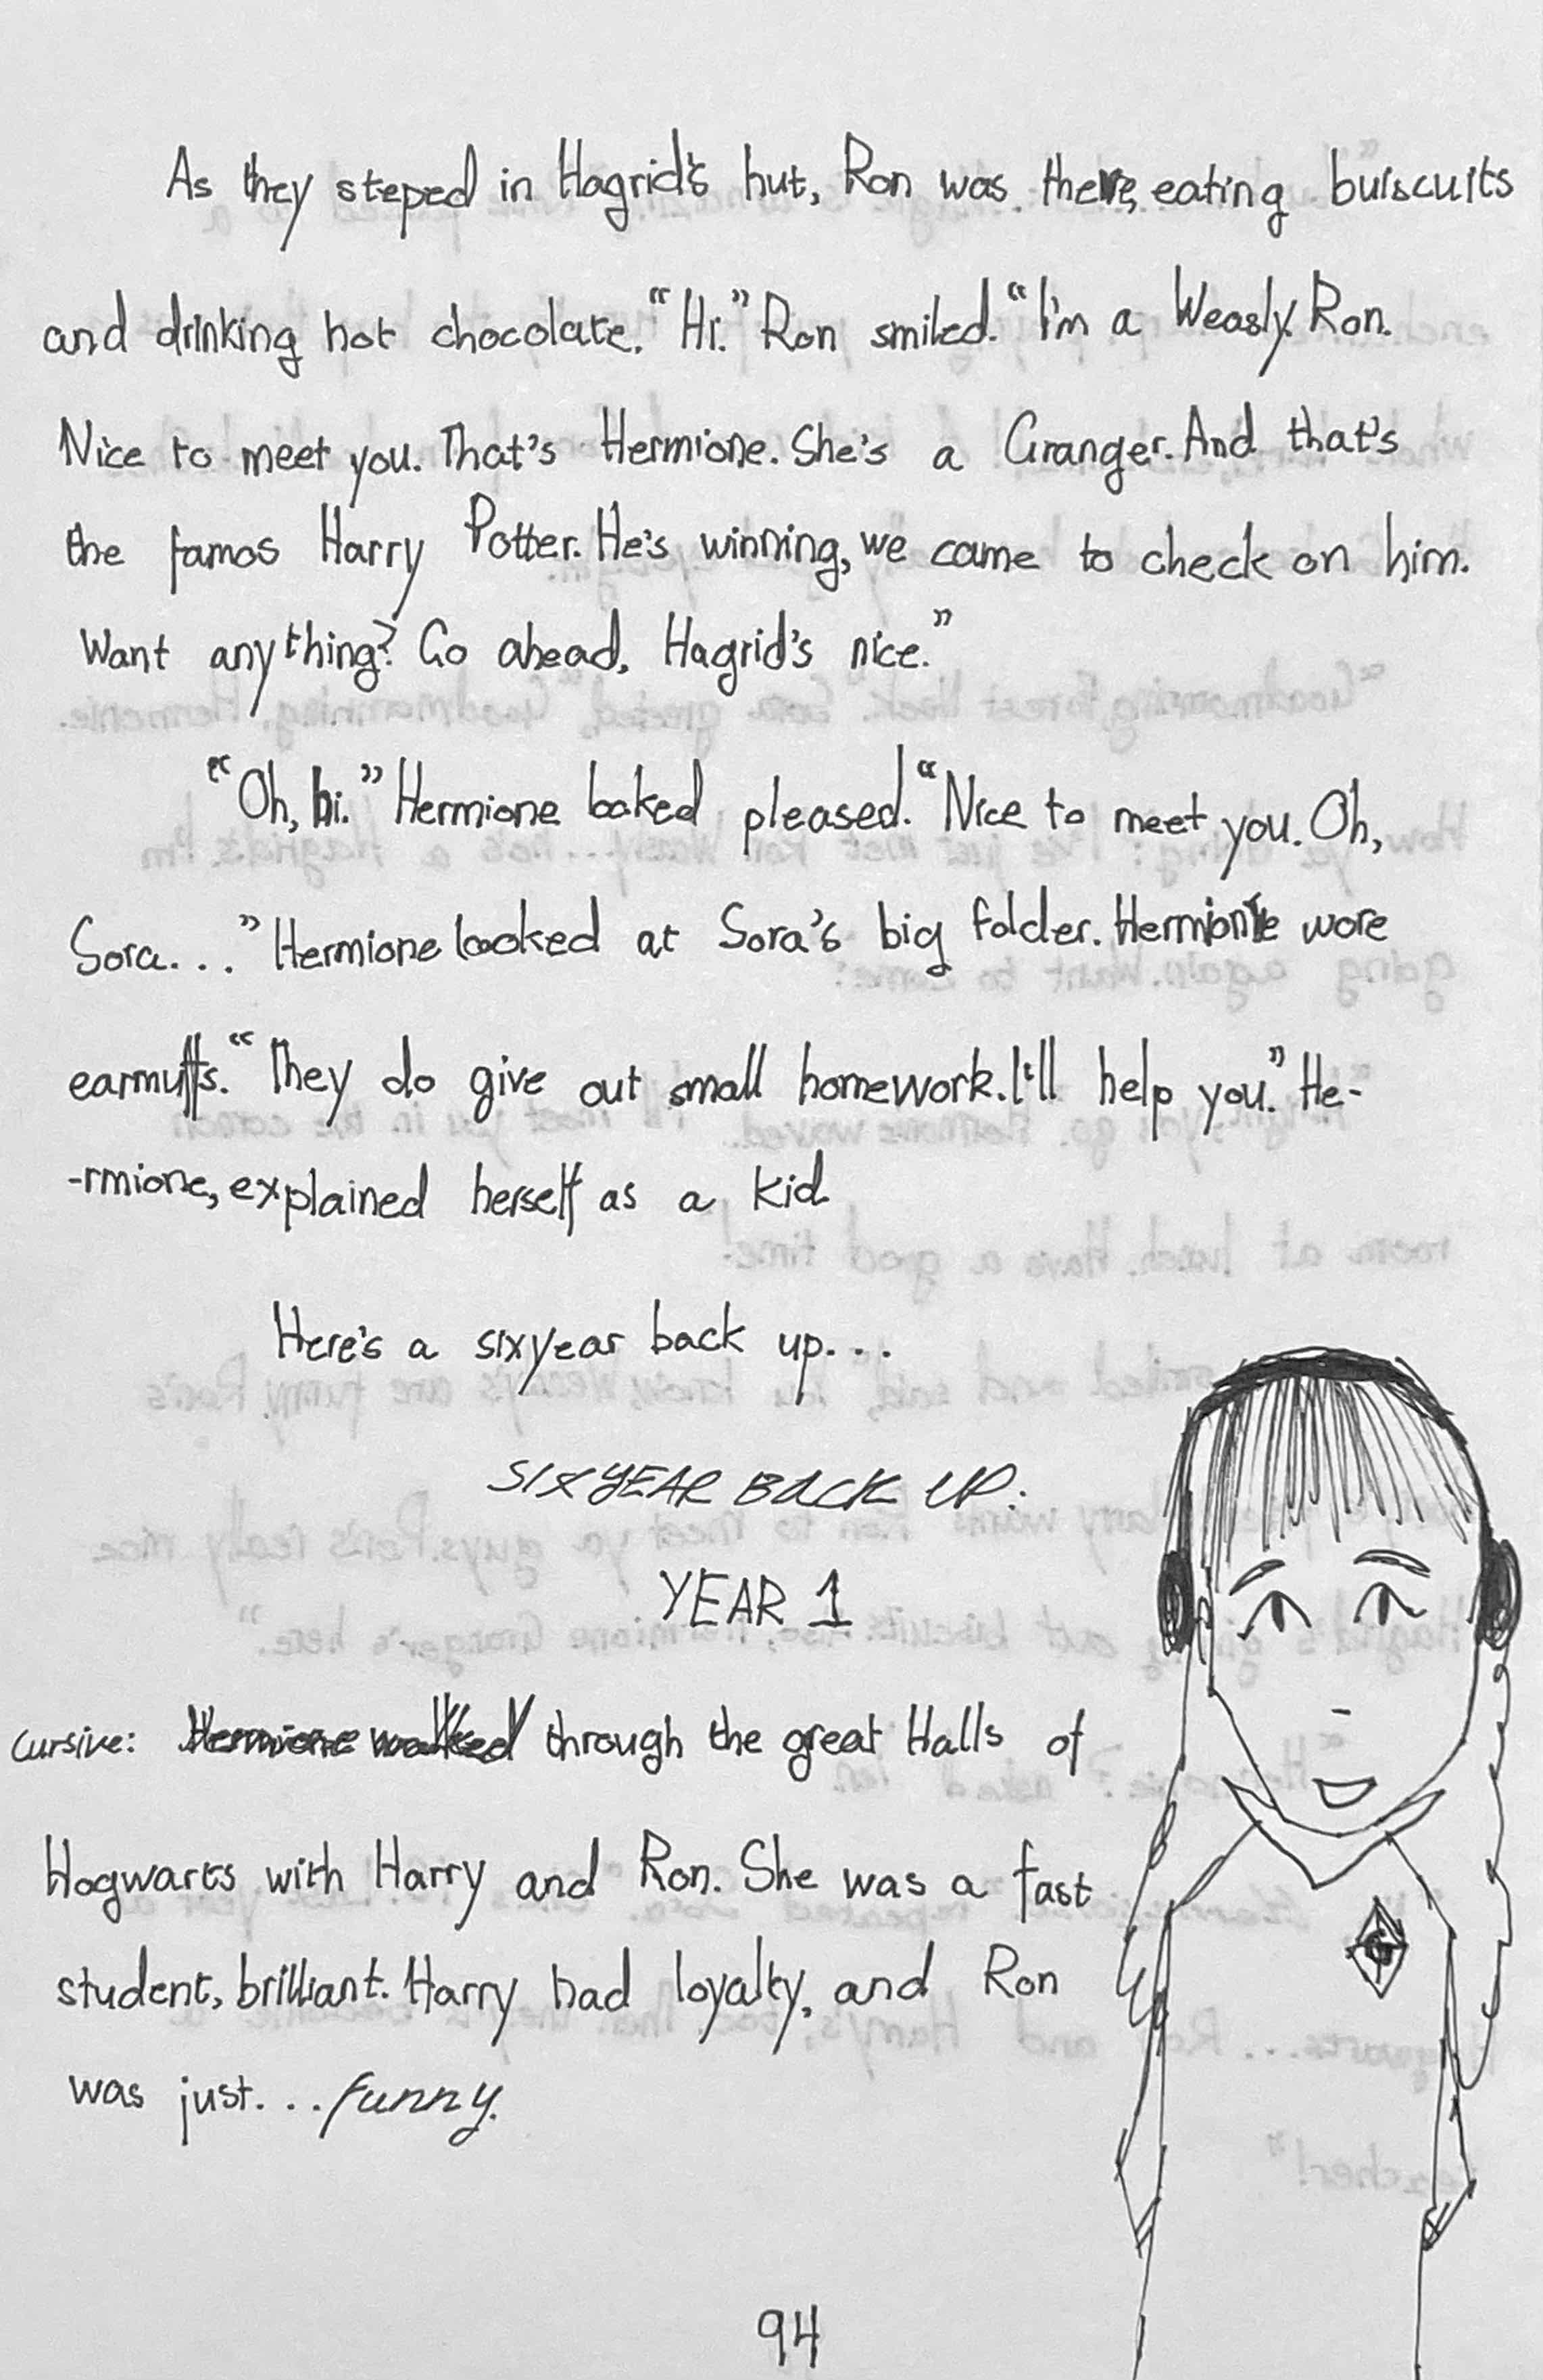 As they steped in Hagrid's hut, Ron was there, eating buiscuits
and drinking hot chocolate. "Hi." Ron smiled. "I'm a Weasly. Ron.
Nice to meet you. That's Hermione. She's a Granger. And that's
the famos Harry Potter. He's winning, we came to check on him.
Want anything? Go ahead, Hagrid's nice."
"Oh, hi." Hermione looked pleased. "Nice to meet you. Oh,
Sora..." Hermione looked at Sora's big folder. Hermione wore
earmuffs. "They do give out small homework. I'll help you." He-
-rmione, explained herself as a kid.
Here's a sixyear back up...
SIXYEAR BACK UP:
YEAR 1
cursive: Hermione walked through the great Halls of
Hogwarts with Harry and Ron. She was a fast
student, brilliant. Harry had loyalty, and Ron
was just... funny.
G
94